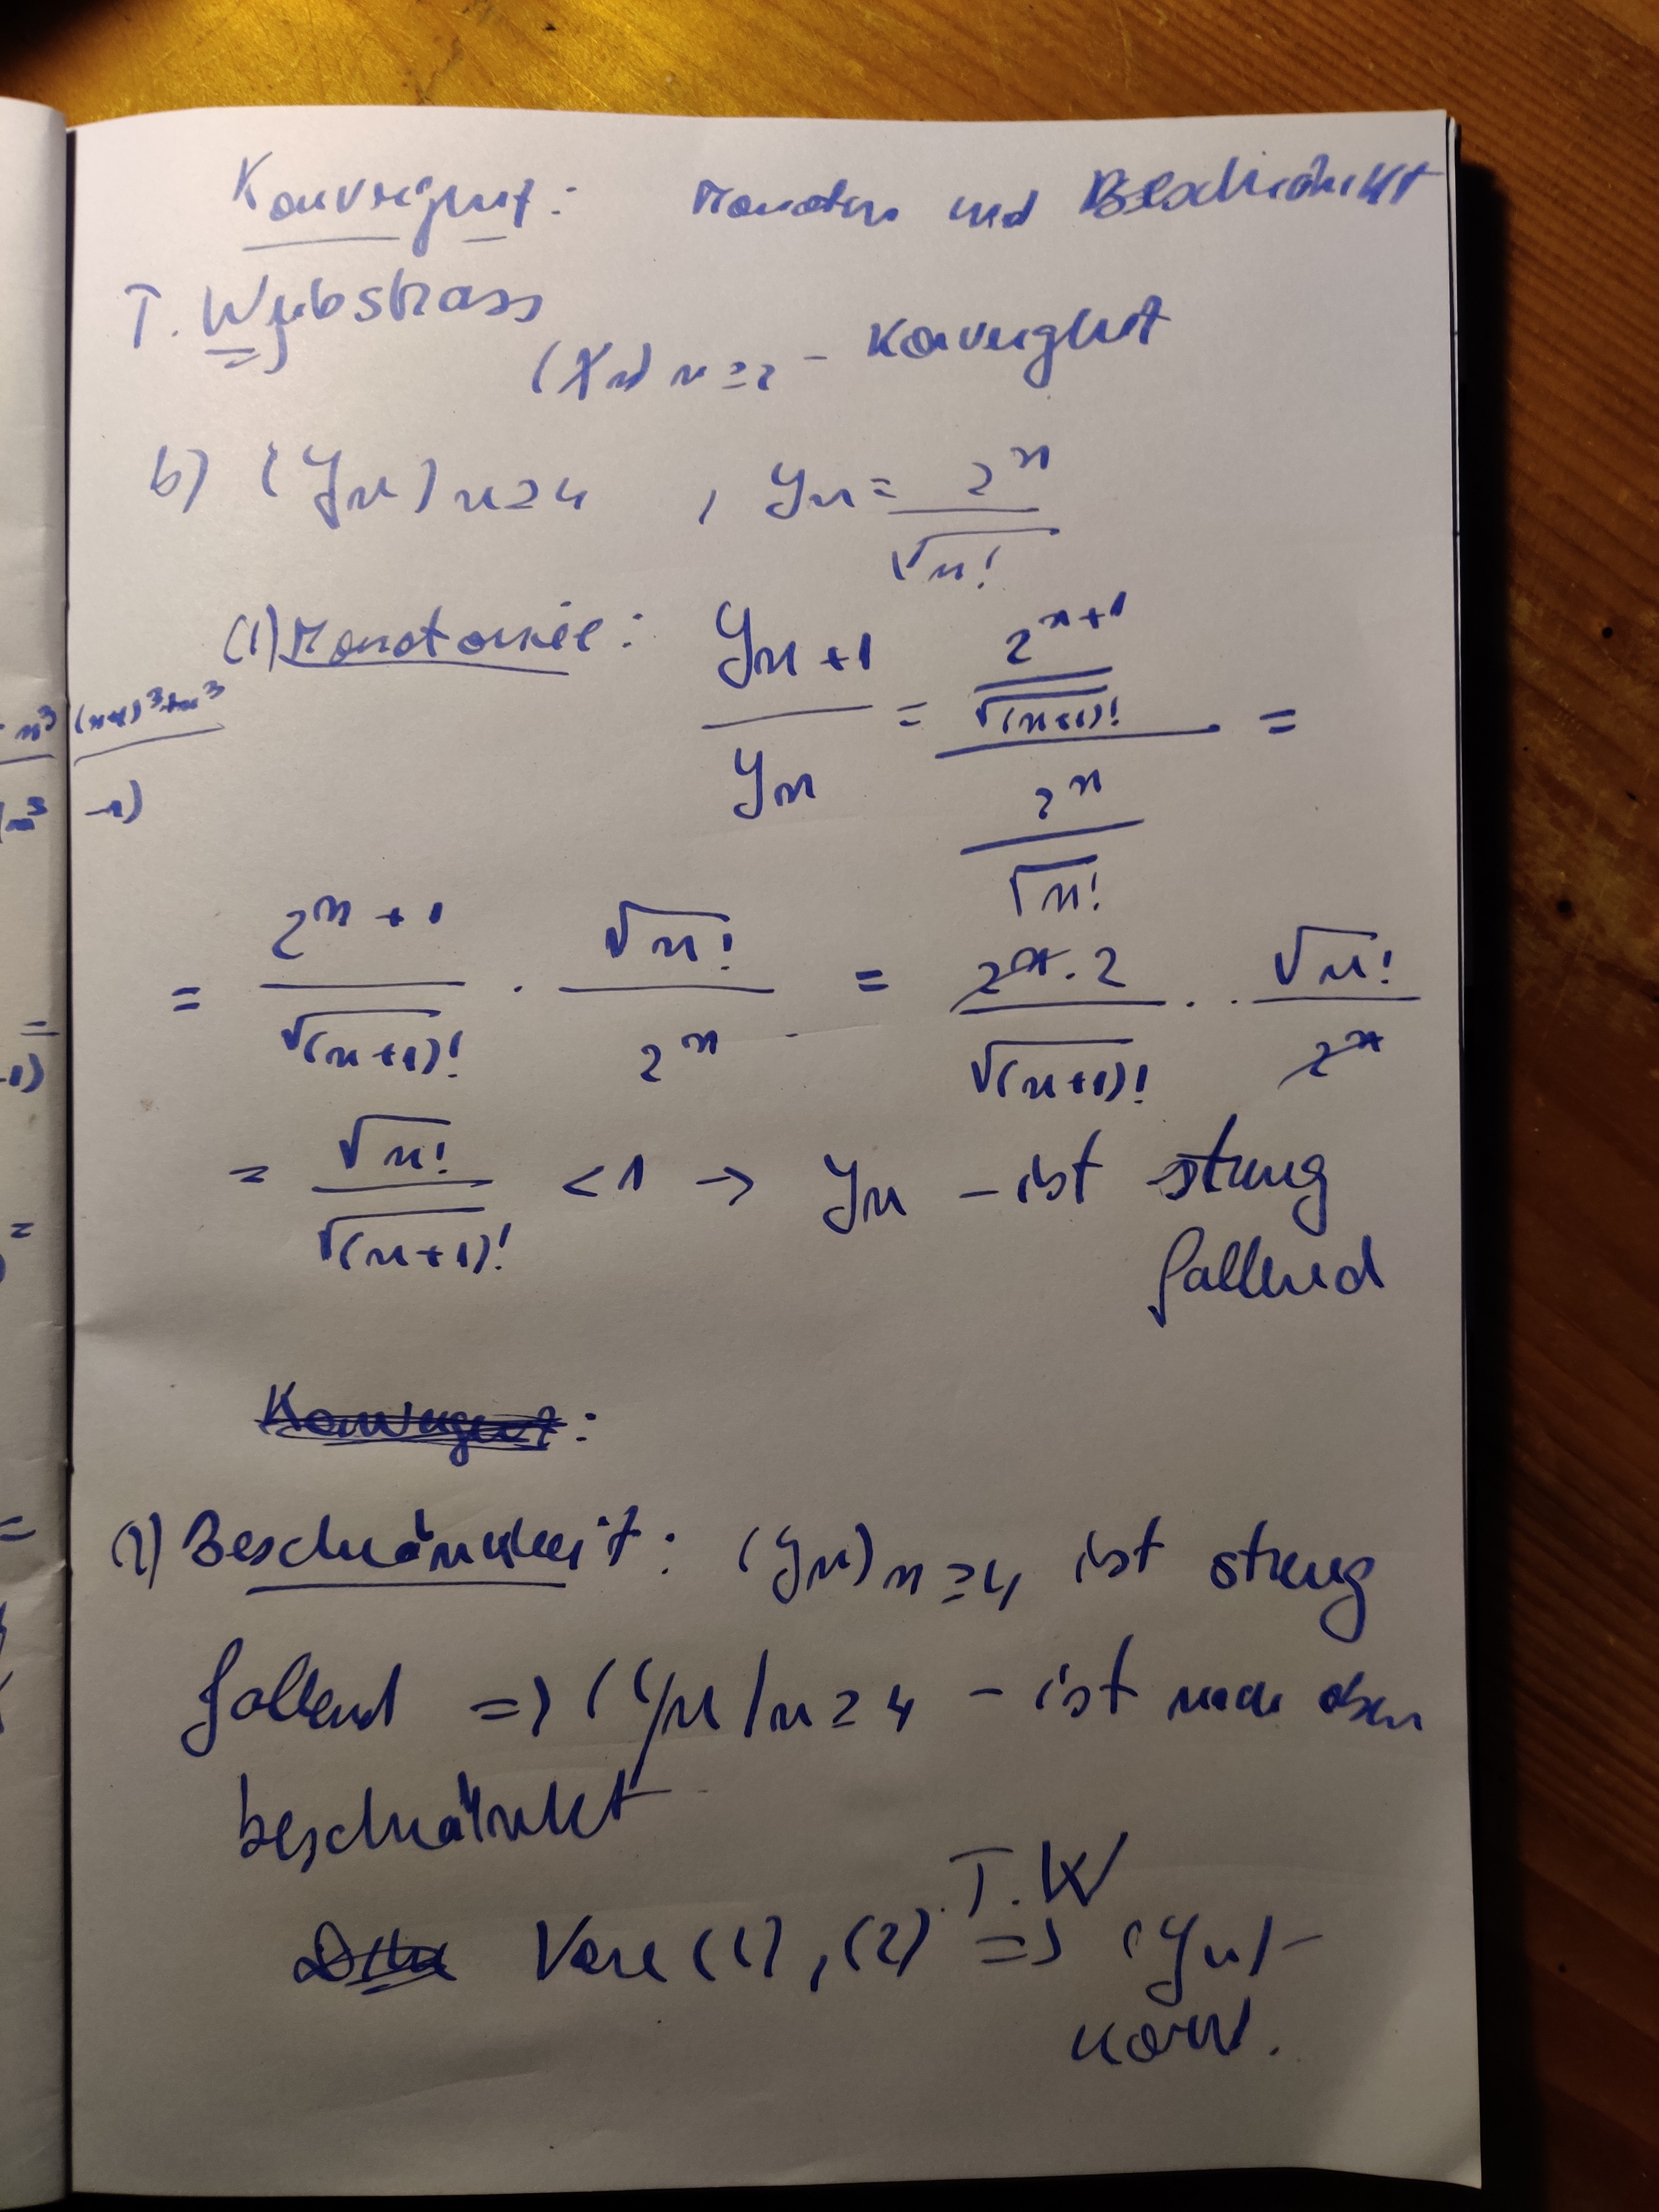 Konvergent: Monoton und Beschränkt
T. Weierstrass
(Xn) n≥2 - Konvergent
b) (yn)n≥4 , yn = 2^n / √n!
(1) Monotonie: yn+1 / yn = (2^(n+1) / √(n+1)!) / (2^n / √n!) =
= 2^(n+1) / √(n+1)! · √n! / 2^n = 2^n · 2 / √(n+1)! · · √n! / 2^n
= √n! / √(n+1)! < 1 → yn - ist streng
fallend
Konvergent:
(2) Beschränktheit: (yn)n≥4 ist streng
fallend => (yn)n≥4 - ist nach oben
beschränkt
(1), (2) T.W => (yn) -
konv.
n³ (n+1)³+n³
n³ -1)
=
-1)
=
=